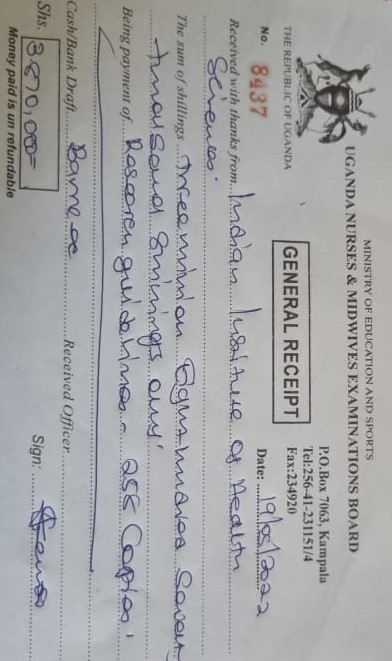 MINISTRY OF EDUCATION AND SPORTS
UGANDA NURSES & MIDWIVES EXAMINATIONS BOARD
P.O.Box 7063, Kampala
Tel:256-41-231151/4
Fax:234920
THE REPUBLIC OF UGANDA
GENERAL RECEIPT
No. 8437
Date: 19/05/2022
Received with thanks from Indian Institute of Health
Sciences
The sum of shillings Three million Eight hundred Seventy
thousand Shillings only
Being payment of Research guidelines - 258 Copies
Cash/Bank Draft Received Officer
Shs. 3,870,000= Sign:
Money paid is un refundable